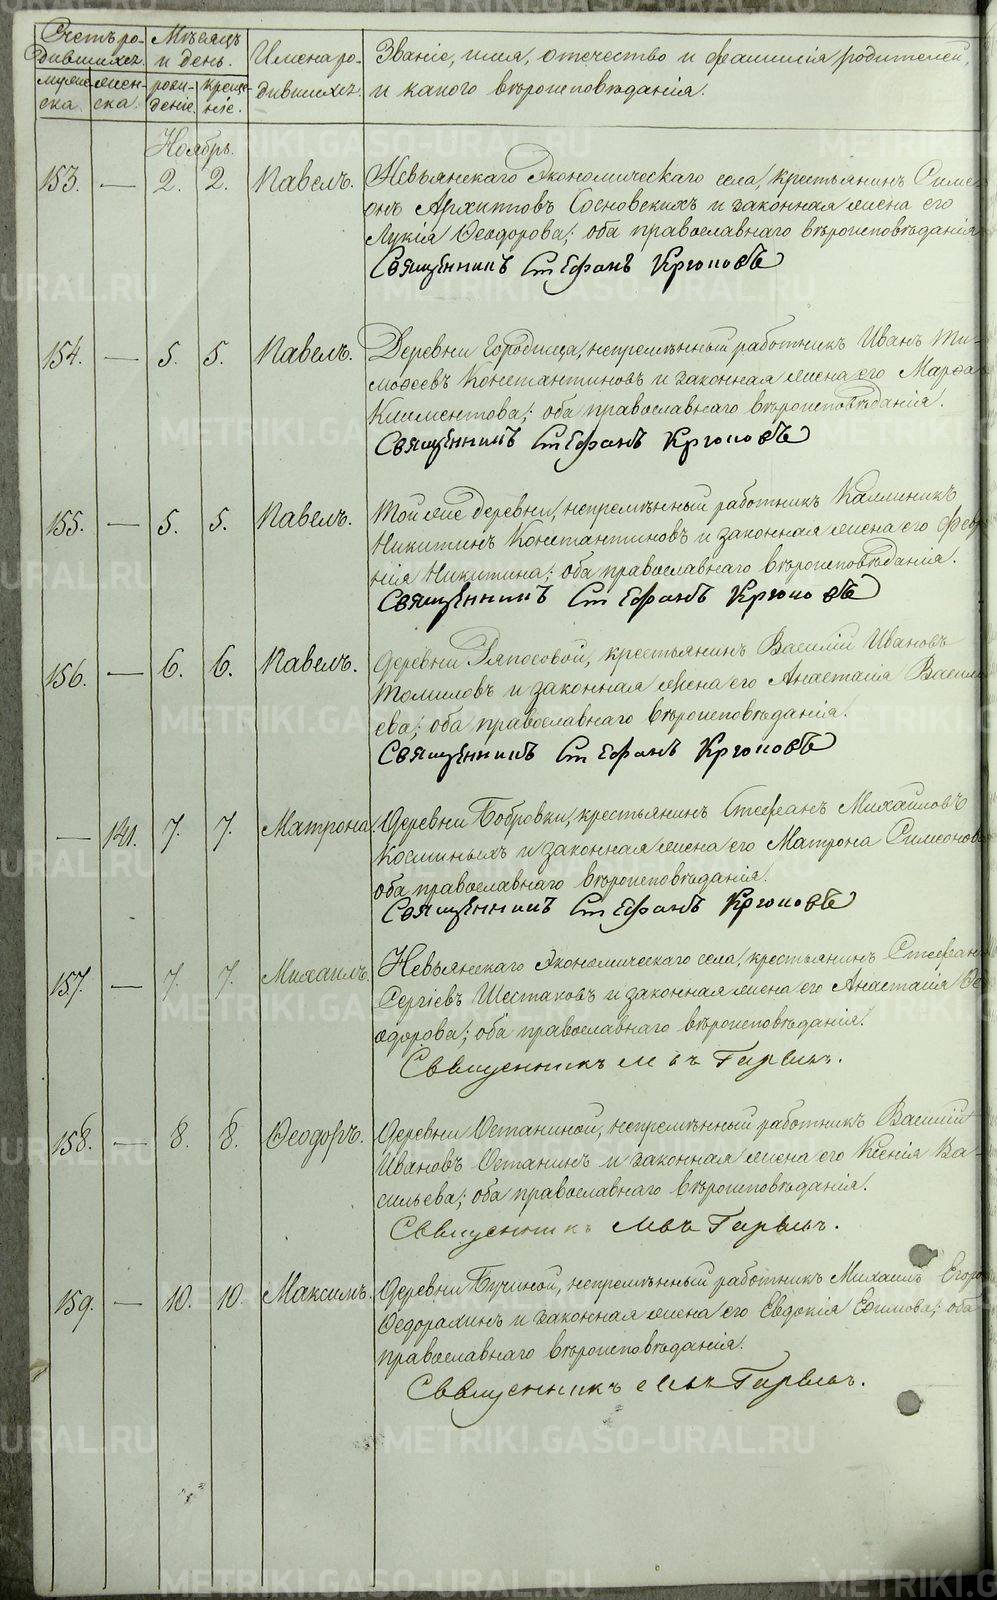 Счетъ ро-
дившихся.
Мѣсяцъ
и день.
Имена ро-
дившихся.
Званіе, имя, отечество и фамилія родителей,
и какого вѣроисповѣданія.
муже-
ска.
жен-
ска.
рож-
деніе.
креще-
ніе.
Ноябрь.
153. — 2. 2. Павелъ. Невьянскаго Экономическаго села, крестьянинъ Симе-
онъ Архиповъ Сосновскихъ и законная жена его
Лукія Ѳеодорова; оба православнаго вѣроисповѣданія
Священникъ Стефанъ Крюковъ
154. — 5. 5. Павелъ. Деревни Городища, непремѣнный работникъ Иванъ Ти-
моѳеевъ Константиновъ и законная жена его Марѳа
Климентова; оба православнаго вѣроисповѣданія.
Священникъ Стефанъ Крюковъ
155. — 5. 5. Павелъ. Той же деревни, непремѣнный работникъ Каллиникъ
Никитинъ Константиновъ и законная жена его Февро-
нія Никитина; оба православнаго вѣроисповѣданія.
Священникъ Стефанъ Крюковъ
156. — 6. 6. Павелъ. Деревни Ряпосовой, крестьянинъ Василій Ивановъ
Томиловъ и законная жена его Анастасія Василь-
ева; оба православнаго вѣроисповѣданія.
Священникъ Стефанъ Крюковъ
— 141. 7. 7. Матрона. Деревни Бобровки, крестьянинъ Стефанъ Михаиловъ
Косминыхъ и законная жена его Матрона Симеонова
оба православнаго вѣроисповѣданія.
Священникъ Стефанъ Крюковъ
157. — 7. 7. Михаилъ. Невьянскаго Экономическаго села, крестьянинъ Стефанъ
Сергіевъ Шестаковъ и законная жена его Анастасія Ѳе-
одорова; оба православнаго вѣроисповѣданія.
Священникъ
158. — 8. 8. Ѳеодоръ. Деревни Останиной, непремѣнный работникъ Василій
Ивановъ Останинъ и законная жена его Ксенія Ва-
сильева; оба православнаго вѣроисповѣданія.
Священникъ
159. — 10. 10. Максимъ. Деревни Бучиной, непремѣнный работникъ Михаилъ Егоровъ
Ѳедорахинъ и законная жена его Евдокія Ефимова; оба
православнаго вѣроисповѣданія.
Священникъ
METRIKI.GASO-URAL.RU